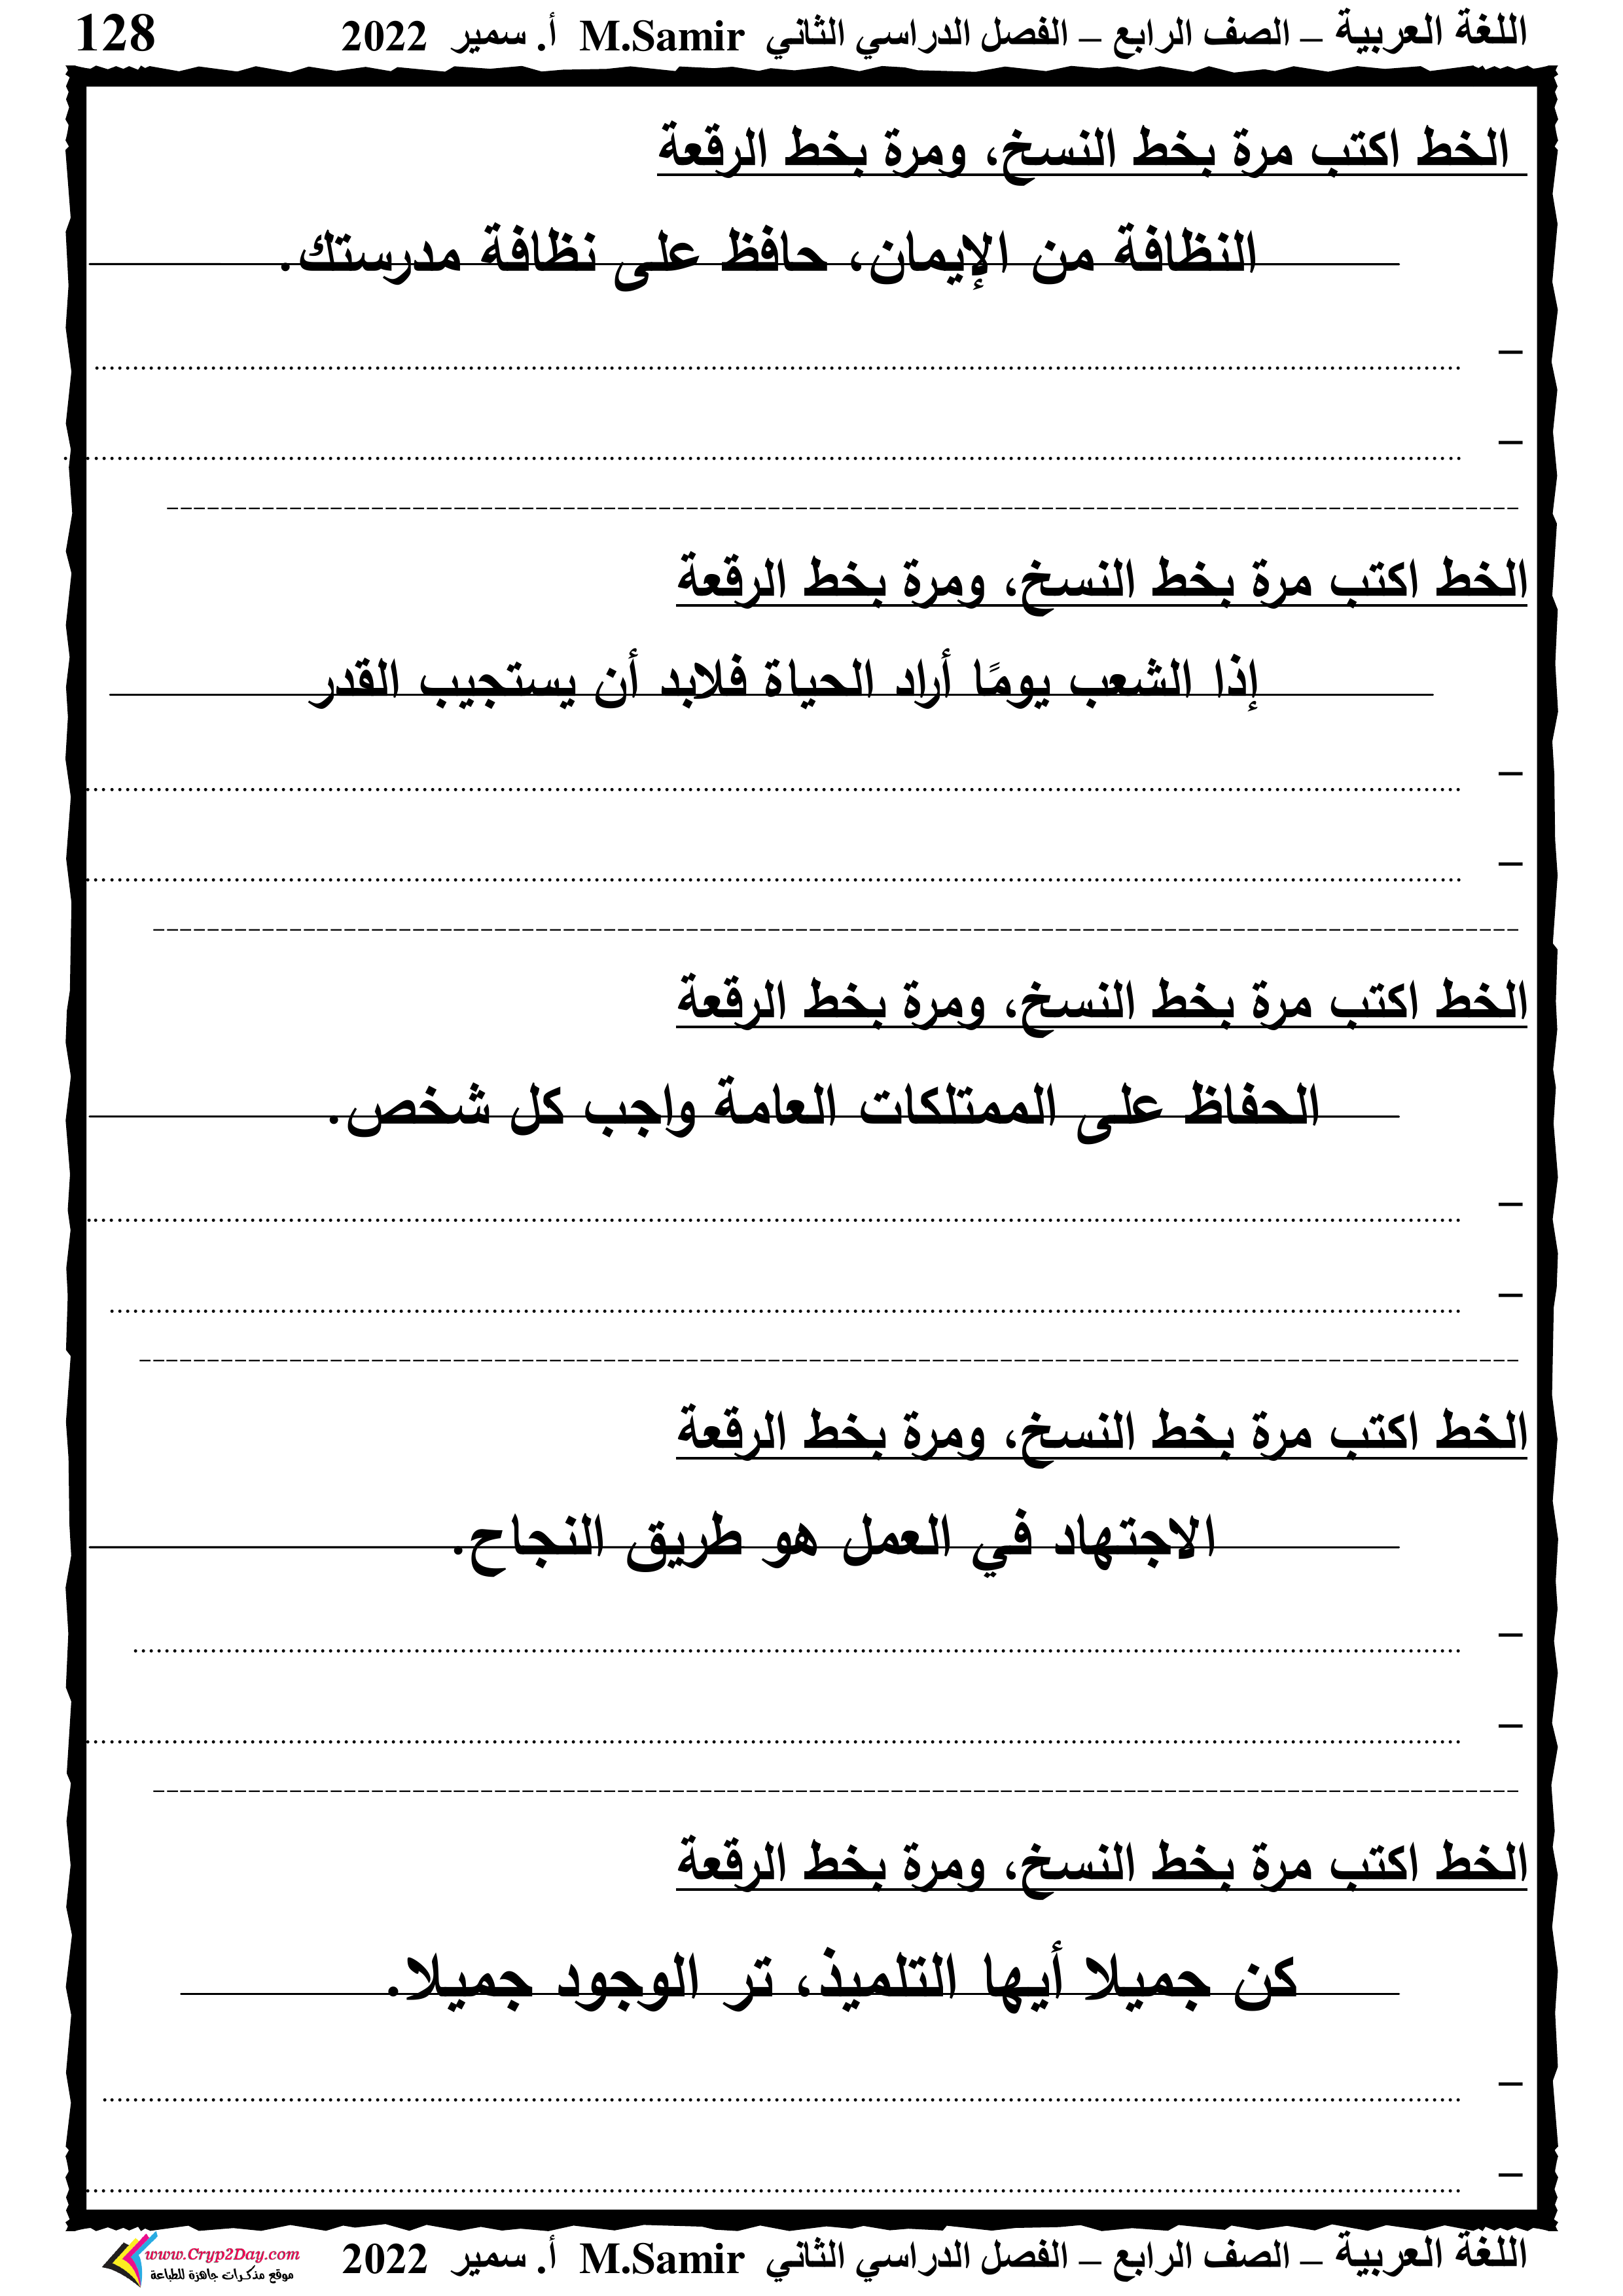 اللغة العربية – الصف الرابع – الفصل الدراسي الثاني M.Samir أ. سمير 2022 128
الخط اكتب مرة بخط النسخ، ومرة بخط الرقعة
النظافة من الإيمان، حافظ على نظافة مدرستك.
–
–
الخط اكتب مرة بخط النسخ، ومرة بخط الرقعة
إذا الشعب يومًا أراد الحياة فلابد أن يستجيب القدر
–
–
الخط اكتب مرة بخط النسخ، ومرة بخط الرقعة
الحفاظ على الممتلكات العامة واجب كل شخص.
–
–
الخط اكتب مرة بخط النسخ، ومرة بخط الرقعة
الاجتهاد في العمل هو طريق النجاح.
–
–
الخط اكتب مرة بخط النسخ، ومرة بخط الرقعة
كن جميلا أيها التلميذ، تر الوجود جميلا.
–
–
اللغة العربية – الصف الرابع – الفصل الدراسي الثاني M.Samir أ. سمير 2022
www.Cryp2Day.com
موقع مذكرات جاهزة للطباعة